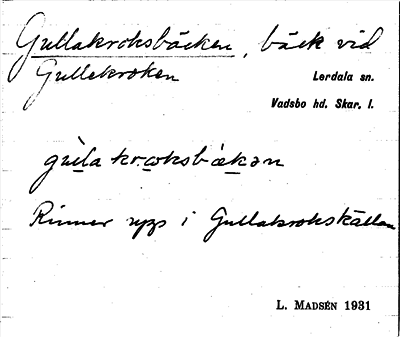 Gullakroksbäcken, bäck vid
Gullekroken
Lerdala sn.
Vadsbo hd. Skar. l.
gùla kr.ωksbǽkən
Rinner upp i Gullakrokskällan
L. MADSÉN 1931